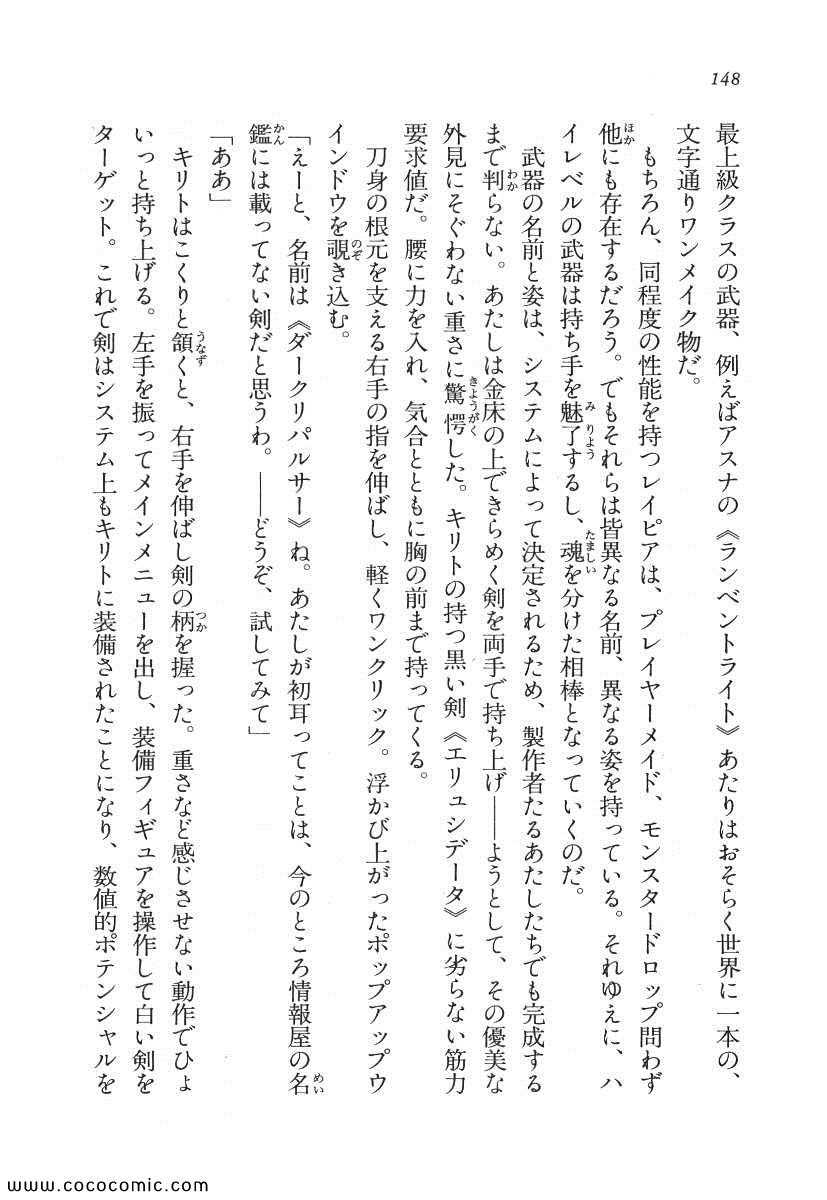 148
最上級クラスの武器、例えばアスナの《ランベントライト》あたりはおそらく世界に一本の、
文字通りワンメイク物だ。
もちろん、同程度の性能を持つレイピアは、プレイヤーメイド、モンスタードロップ問わず
他にも存在するだろう。でもそれらは皆異なる名前、異なる姿を持っている。それゆえに、ハ
イレベルの武器は持ち手を魅了するし、魂を分けた相棒となっていくのだ。
武器の名前と姿は、システムによって決定されるため、製作者たるあたしたちでも完成する
まで判らない。あたしは金床の上できらめく剣を両手で持ち上げ——ようとして、その優美な
外見にそぐわない重さに驚愕した。キリトの持つ黒い剣《エリュシデータ》に劣らない筋力
要求値だ。腰に力を入れ、気合とともに胸の前まで持ってくる。
刀身の根元を支える右手の指を伸ばし、軽くワンクリック。浮かび上がったポップアップウ
インドウを覗き込む。
「えーと、名前は《ダークリパルサー》ね。あたしが初耳ってことは、今のところ情報屋の名
鑑には載ってない剣だと思うわ。——どうぞ、試してみて」
「ああ」
キリトはこくりと頷くと、右手を伸ばし剣の柄を握った。重さなど感じさせない動作でひょ
いっと持ち上げる。左手を振ってメインメニューを出し、装備フィギュアを操作して白い剣を
ターゲット。これで剣はシステム上もキリトに装備されたことになり、数値的ポテンシャルを
www.cococomic.com/